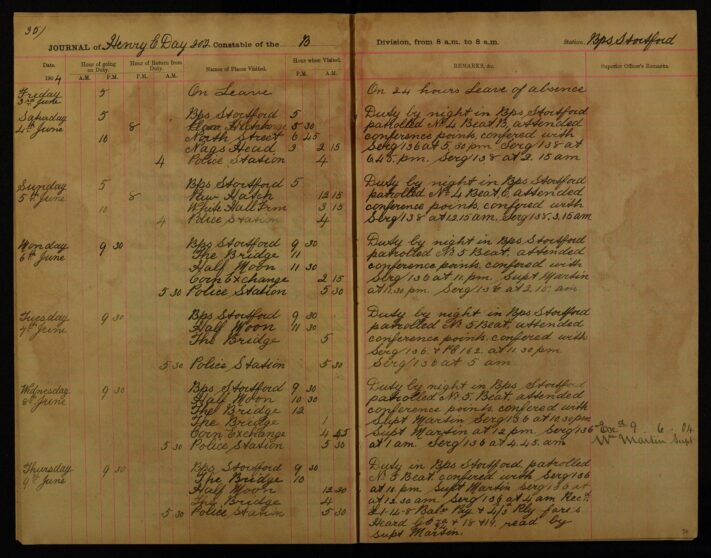 30)
JOURNAL of Henry E Day 202. Constable of the B Division, from 8 a.m. to 8 a.m. Station, Bps Stortford
Date. Hour of going on Duty. Hour of Return from Duty. Names of Places Visited. Hour when Visited. REMARKS, &c. Superior Officer's Remarks.
1904 A.M. P.M. A.M. P.M. A.M. P.M.
Friday 5 On Leave On 24 hours Leave of absence
3rd June
Saturday 5 Bps Stortford 5 Duty by night in Bps Stortford
4th June 8 5 30 patrolled No 4 Beat B, attended
10 North Street 6 45 conference points, confered with
Nags Head 3 2 15 Serg 136 at 5,30 pm. Serg 138 at
4 Police Station 4 6.45. pm. Serg 138 at 2. 15 am
Sunday 5 Bps Stortford 5 Duty by night in Bps Stortford
5th June 8 Hatch 12 15 patrolled No 4 Beat C, attended
10 White Hall Frm 3 15 conference points, confered with
4 Police Station 4 Serg 138 at 12.15 am, Serg 138. 3.15 am
Monday 9 30 Bps Stortford 9 30 Duty by night in Bps Stortford
6th June The Bridge 11 patrolled No 5 Beat, attended
Half Moon 11 30 conference points, confered with
Corn Exchange 2 15 Serg 136 at 11, pm. Supt Martin
5 30 Police Station 5 30 at 11.30 pm. Serg 138 at 2. 15. am
Tuesday 9 30 Bps Stortford 9 30 Duty by night in Bps Stortford
7th June Half Moon 11 30 patrolled No 5 Beat, attended
The Bridge 5 conference points, confered with
Serg 136 & PC 162. at 11.30 pm
5 30 Police Station 5 30 Serg 136 at 5 am.
Wednesday 9 30 Bps Stortford 9 30 Duty by night in Bps Stortford
8th June Half Moon 10 30 patrolled No 5. Beat, attended
The Bridge 12 conference points, confered with
The Bridge 1 Supt Martin Serg 136 at 10.30 pm
Corn Exchange 4 45 Supt Martin at 12 pm. Serg 136
5 30 Police Station 5 30 at 1 am. Serg 136 at 4.45. am
9 . 6 . 04
Wm Martin Supt
Thursday 9 30 Bps Stortford 9 30 Duty in Bps Stortford, patrolled
9th June The Bridge 10 No 5 Beat, confered with Serg 136
Half Moon 12 30 at 10 pm. Supt Martin Serg 136 at
The Bridge 4 at 12.30 am. Serg 136 at 4 am Recd
5 30 Police Station 5 30 Pay & Rly fares
Heard 18 & 19. read by
Supt Martin.